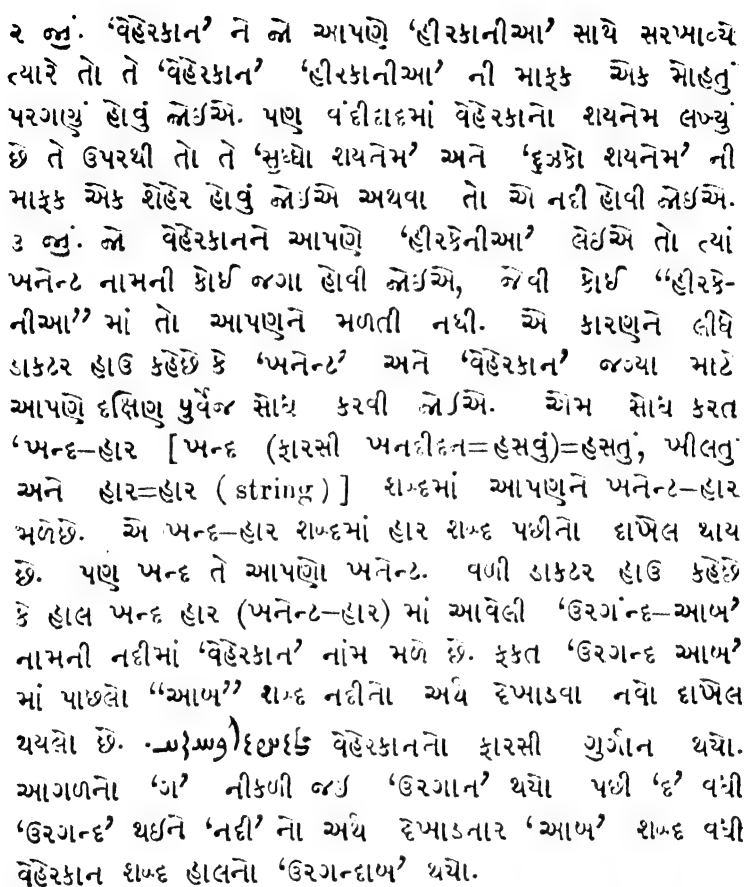 ૨ જું. ‘વેહેરકાન’ ને જો આપણે ‘હીરકાનીઆ’ સાથે સરખાવ્યે
ત્યારે તો તે ‘વેહેરકાન’ ‘હીરકાનીઆ’ ની માફક એક મોહતું
પરગણું હોવું જોઈએ. પણ વંદીદાદમાં વેહેરકાનો શયનેમ લખ્યું
છે તે ઉપરથી તો તે ‘સુધ્ધો શયનેમ’ અને ‘દુઝકો શયનેમ’ ની
માફક એક શેહેર હોવું જોઈએ અથવા તો એ નદી હોવી જોઈએ.
૩ જું. જો વેહેરકાનને આપણે ‘હીરકેનીઆ’ લેઈએ તો ત્યાં
ખનેન્ટ નામની કોઈ જગા હોવી જોઈએ, જેવી કોઈ “હીરકે-
નીઆ” માં તો આપણને મળતી નથી. એ કારણને લીધે
ડાકટર હાઉ કહેછે કે ‘ખનેન્ટ’ અને ‘વેહેરકાન’ જગ્યા માટે
આપણે દક્ષિણ પુર્વેજ સોધ કરવી જોઈએ. એમ સોધ કરત
‘ખન્દ–હાર [ખન્દ (ફારસી ખનદીદન=હસવું)=હસતું, ખીલતુ
અને હાર=હાર (string)] શબ્દમાં આપણને ખનેન્ટ–હાર
મળેછે. એ ખન્દ–હાર શબ્દમાં હાર શબ્દ પછીનો દાખેલ થાય
છે. પણ ખન્દ તે આપણો ખનેન્ટ. વળી ડાકટર હાઉ કહેછે
કે હાલ ખન્દ હાર (ખનેન્ટ–હાર) માં આવેલી ‘ઉરગંન્દ–આબ’
નામની નદીમાં ‘વેહેરકાન’ નાંમ મળે છે. ફકત ‘ઉરગન્દ આબ’
માં પાછલો “આબ” શબ્દ નદીનો અર્થ દેખાડવા નવો દાખેલ
થયલો છે. વેહેરકાનનો ફારસી ગુર્ગાન થયો.
આગળનો ‘ગ’ નીકળી જઈ ‘ઉરગાન’ થયો પછી ‘દ’ વધી
‘ઉરગન્દ’ થઈને ‘નદી’ નો અર્થ દેખાડનાર ‘આબ’ શબ્દ વધી
વેહેરકાન શબ્દ હાલનો ‘ઉરગન્દાબ’ થયો.